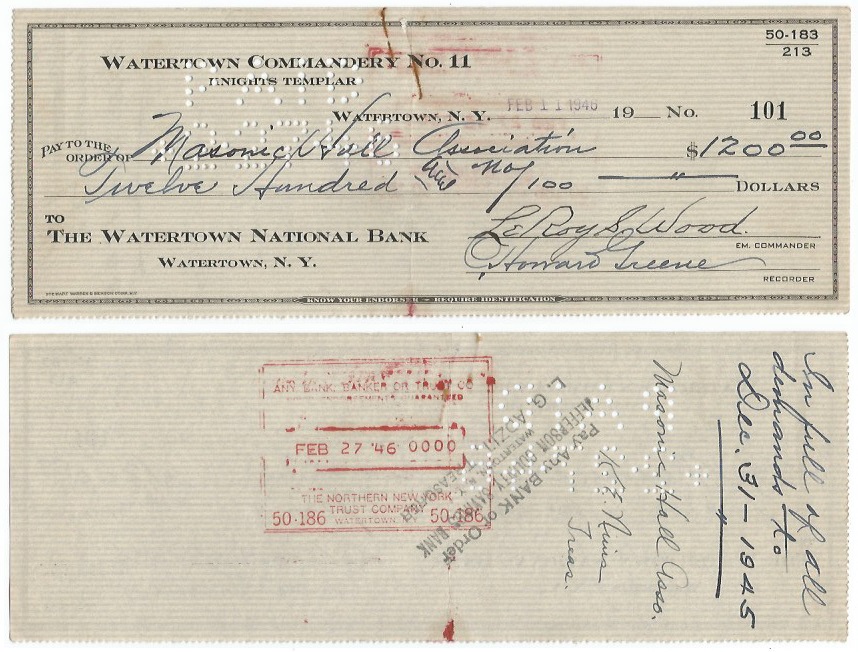 50-183
213
WATERTOWN COMMANDERY No. 11
KNIGHTS TEMPLAR
WATERTOWN, N. Y. FEB 11 1946 19 No. 101
PAY TO THE ORDER OF Masonic Hall Association $1200 00
Twelve Hundred and no/100 DOLLARS
TO
THE WATERTOWN NATIONAL BANK
WATERTOWN, N. Y.
LeRoy S. Wood.
EM. COMMANDER
Howard Greene
RECORDER
KNOW YOUR ENDORSER - REQUIRE IDENTIFICATION
ANY BANK, BANKER OR TRUST CO
ENDORSEMENTS GUARANTEED
FEB 27 '46 0000
THE NORTHERN NEW YORK
TRUST COMPANY
50-186 WATERTOWN 50-186
Pay Any BANK or Order
JEFFERSON COUNTY NATIONAL BANK
WATERTOWN
L. G.
TREASURER
Masonic Hall Asso.
Treas.
In full of all
demands to
Dec. 31-1945